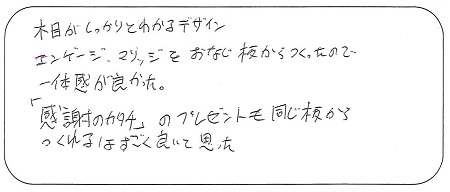 木目がしっかりとわかるデザイン
エンゲージ、マリッジをおなじ板からつくったので
一体感が良かった。
「感謝のカタチ」のプレゼントも同じ板から
つくれるはすごく良いて思った